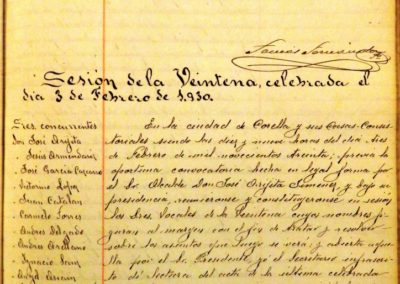 Tomás
Sesión de la Veintena, celebrada el
día 3 de Febrero de 1.930.
Sres. concurrentes
Don José Arrese
" Jesús Armendáriz
" José García
" Victorino
" Juan Catalán
" Carmelo
" Andrés Delgado
" Andrés Arellano
" Ignacio
" Angel
En la ciudad de Corella y sus Casas Consis-
toriales siendo las diez y nueve horas del día tres
de Febrero de mil novecientos treinta; previa la
oportuna convocatoria hecha en legal forma por
el Sr. Alcalde Don José Jimenez y bajo su
presidencia, reunieronse y constituyeronse en sesión
los Sres. Vocales de la Veintena cuyos nombres fi-
guran al margen con el fin de tratar y resolver
sobre los asuntos que luego se verá; y abierta aque-
lla por el Sr. Presidente, yo el Secretario infrascri-
to dí lectura del acta de la última celebrada